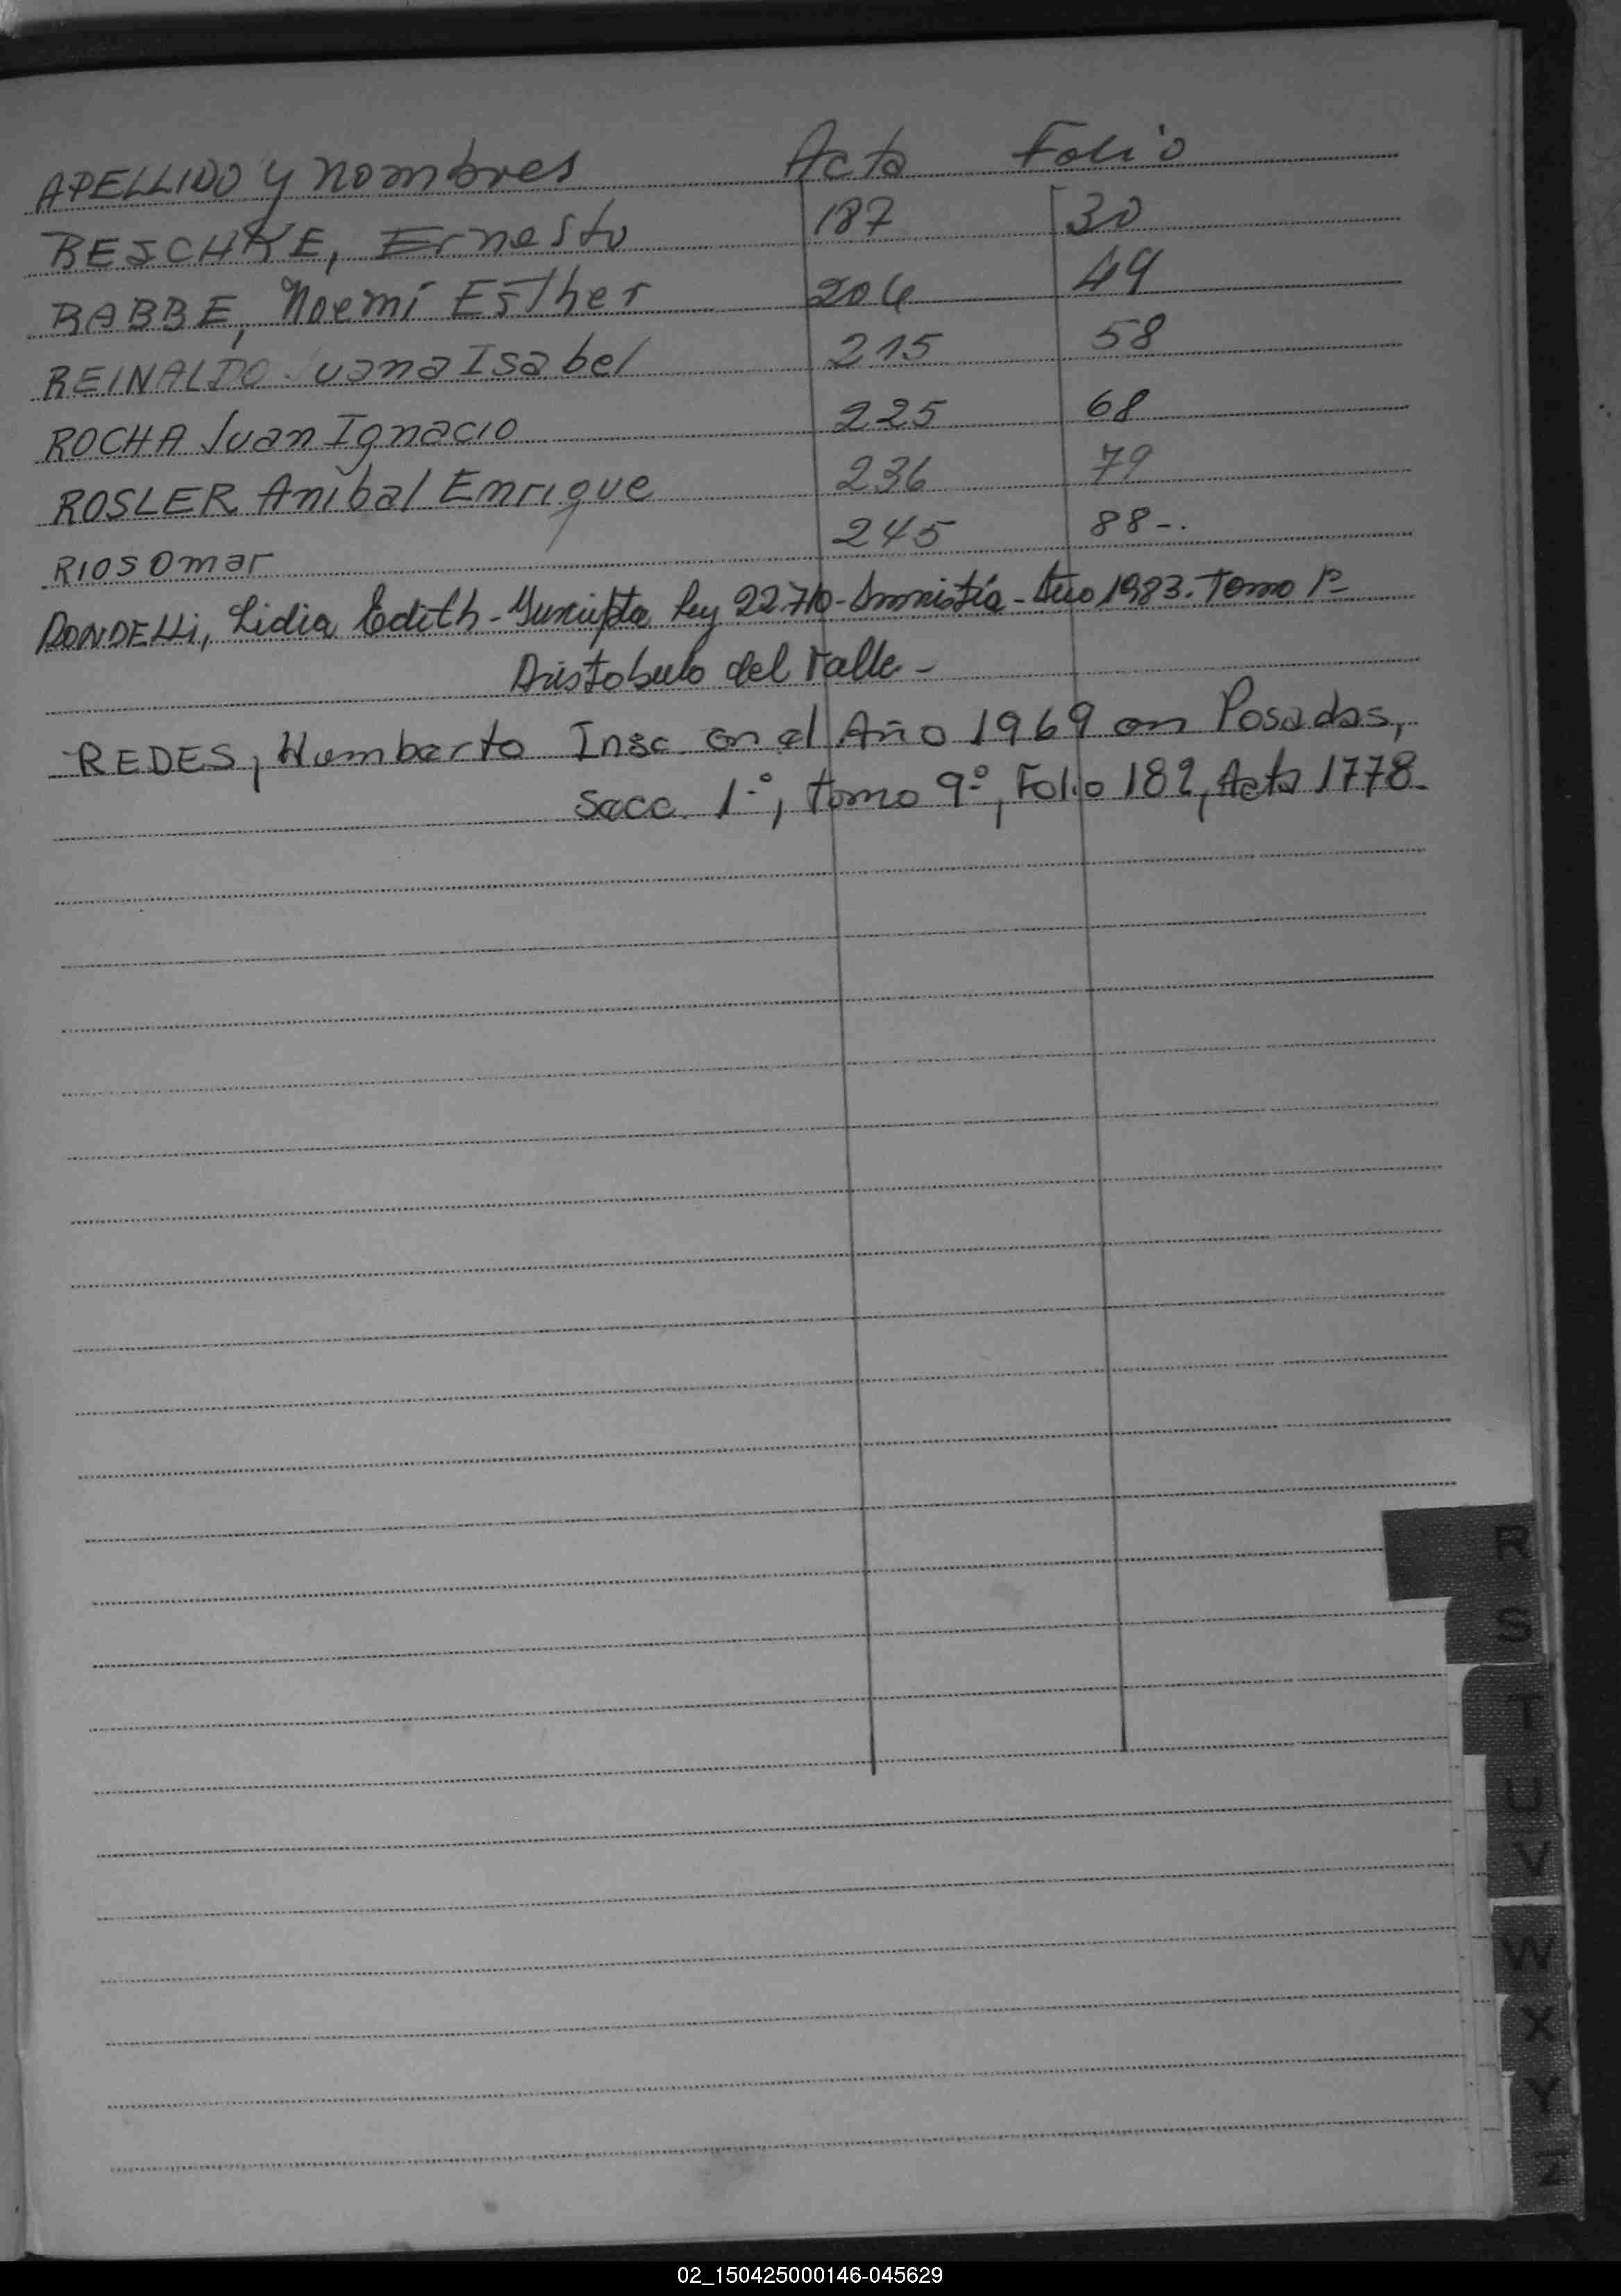 APELLIDO y nombres Acta Folio
RESCHKE, Ernesto 187 30
RABBE, Noemí Esther 204 49
REINALDO Juana Isabel 215 58
ROCHA Juan Ignacio 225 68
ROSLER Anibal Enrique 236 79
RIOS Omar 245 88-.
RONDELLi, Lidia Edith - Inscripta Ley 22.710 - Amnistía - Año 1983. Tomo 1º
Aristobulo del Valle -
REDES, Humberto Insc. en el Año 1969 en Posadas,
Secc. 1-º, tomo 9º, Folio 182, Acta 1778-
R
S
T
U
V
W
X
Y
Z
02_150425000146-045629